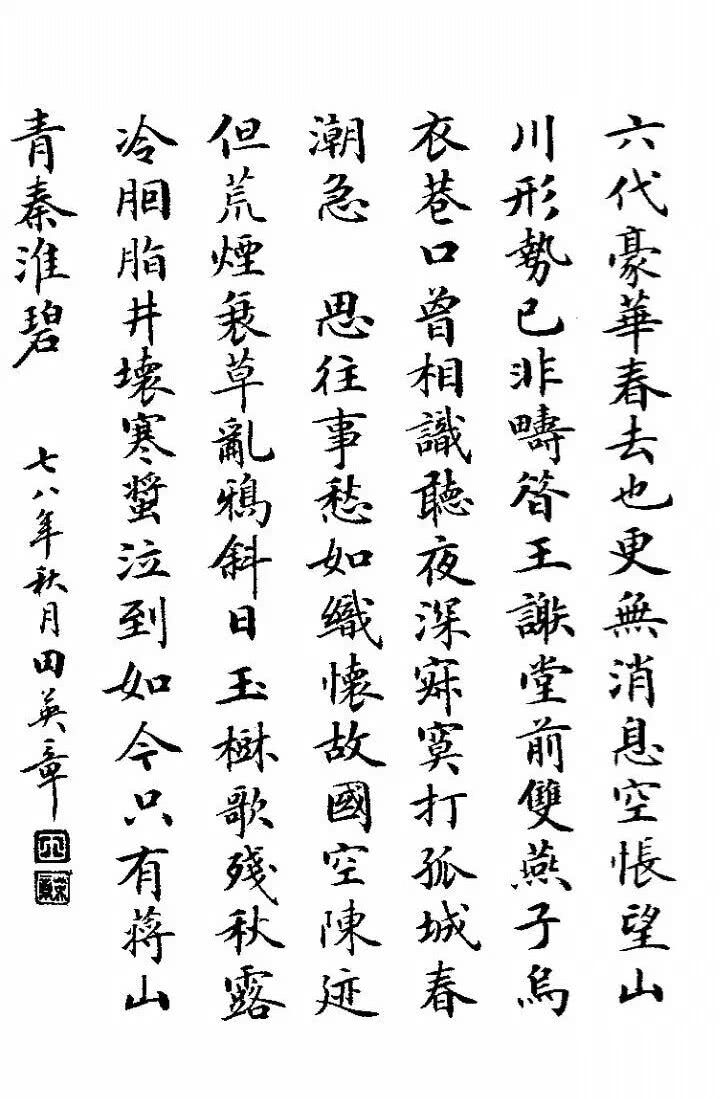 六代豪華春去也更無消息空悵望山
川形勢已非疇昝王謝堂前雙燕子烏
衣巷口曾相識聽夜深寂寞打孤城春
潮急 思往事愁如織懷故國空陳迹
但荒煙衰草亂鴉斜日玉樹歌殘秋露
冷胭脂井壞寒螿泣到如今只有蔣山
青秦淮碧
七八年秋月田英章